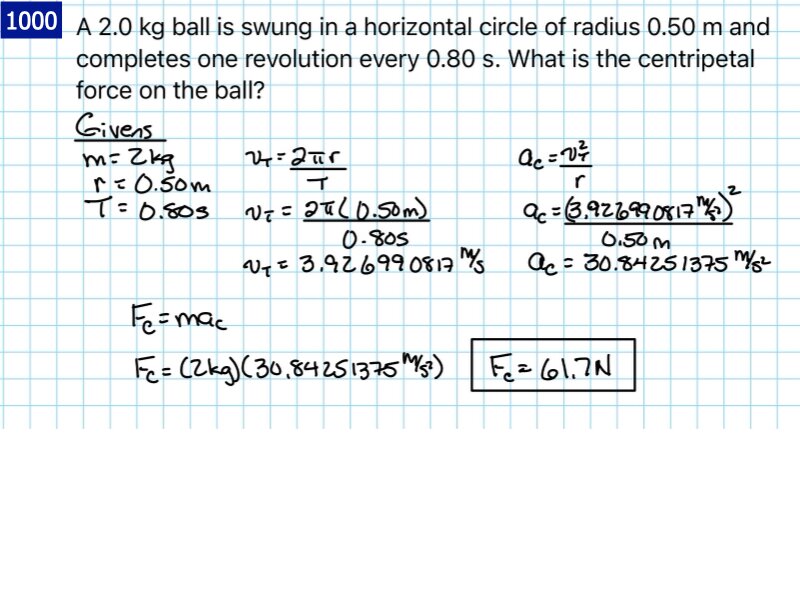 1000
A 2.0 kg ball is swung in a horizontal circle of radius 0.50 m and
completes one revolution every 0.80 s. What is the centripetal
force on the ball?
Givens
m = 2kg
r = 0.50m
T = 0.80s
v_T = 2πr/T
v_T = 2π(0.50m)/0.80s
v_T = 3.926990817 m/s
a_c = v_T²/r
a_c = (3.926990817 m/s)²/0.50m
a_c = 30.84251375 m/s²
F_c = ma_c
F_c = (2kg)(30.84251375 m/s²)
F_c = 61.7N